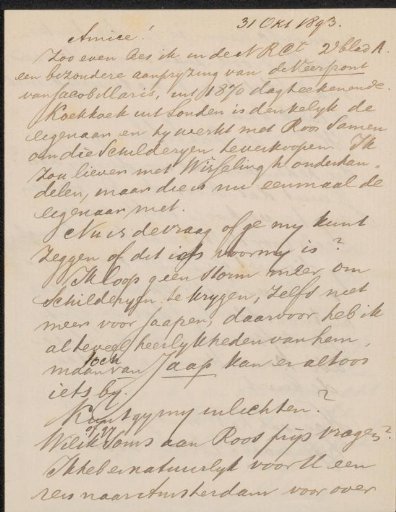 31 Okt 1893.
Amice!
Zoo even lees ik in de N R Ct 2e blad A.
een bizondere aanpryzing van de Veerpont
van Jacob Maris, uit 1870 dagteekenende.
Koekkoek uit Londen is denkelyk de
eigenaar en hy werkt met Roos Samen
om die Schilderyen te verkoopen. Ik
zou liever met Wisselingh onderhan-
delen, maar die is nu eenmaal de
eigenaar niet.
Nu is de vraag of ge my kunt
zeggen of dit iets voor my is?
Ik loop geen storm meer, om
Schilderyen te krygen, zelfs niet
meer voor Jaapen, daarvoor heb ik
al te veel heerlykheden van hem,
maar van Jaap kan er altoos
toch
iets by.
Kunt gy my inlichten?
Wil ik Soms aan Roos prijs vragen?
of gy
Ik heb er natuurlyk voor U een
reis naar Amsterdam voor over